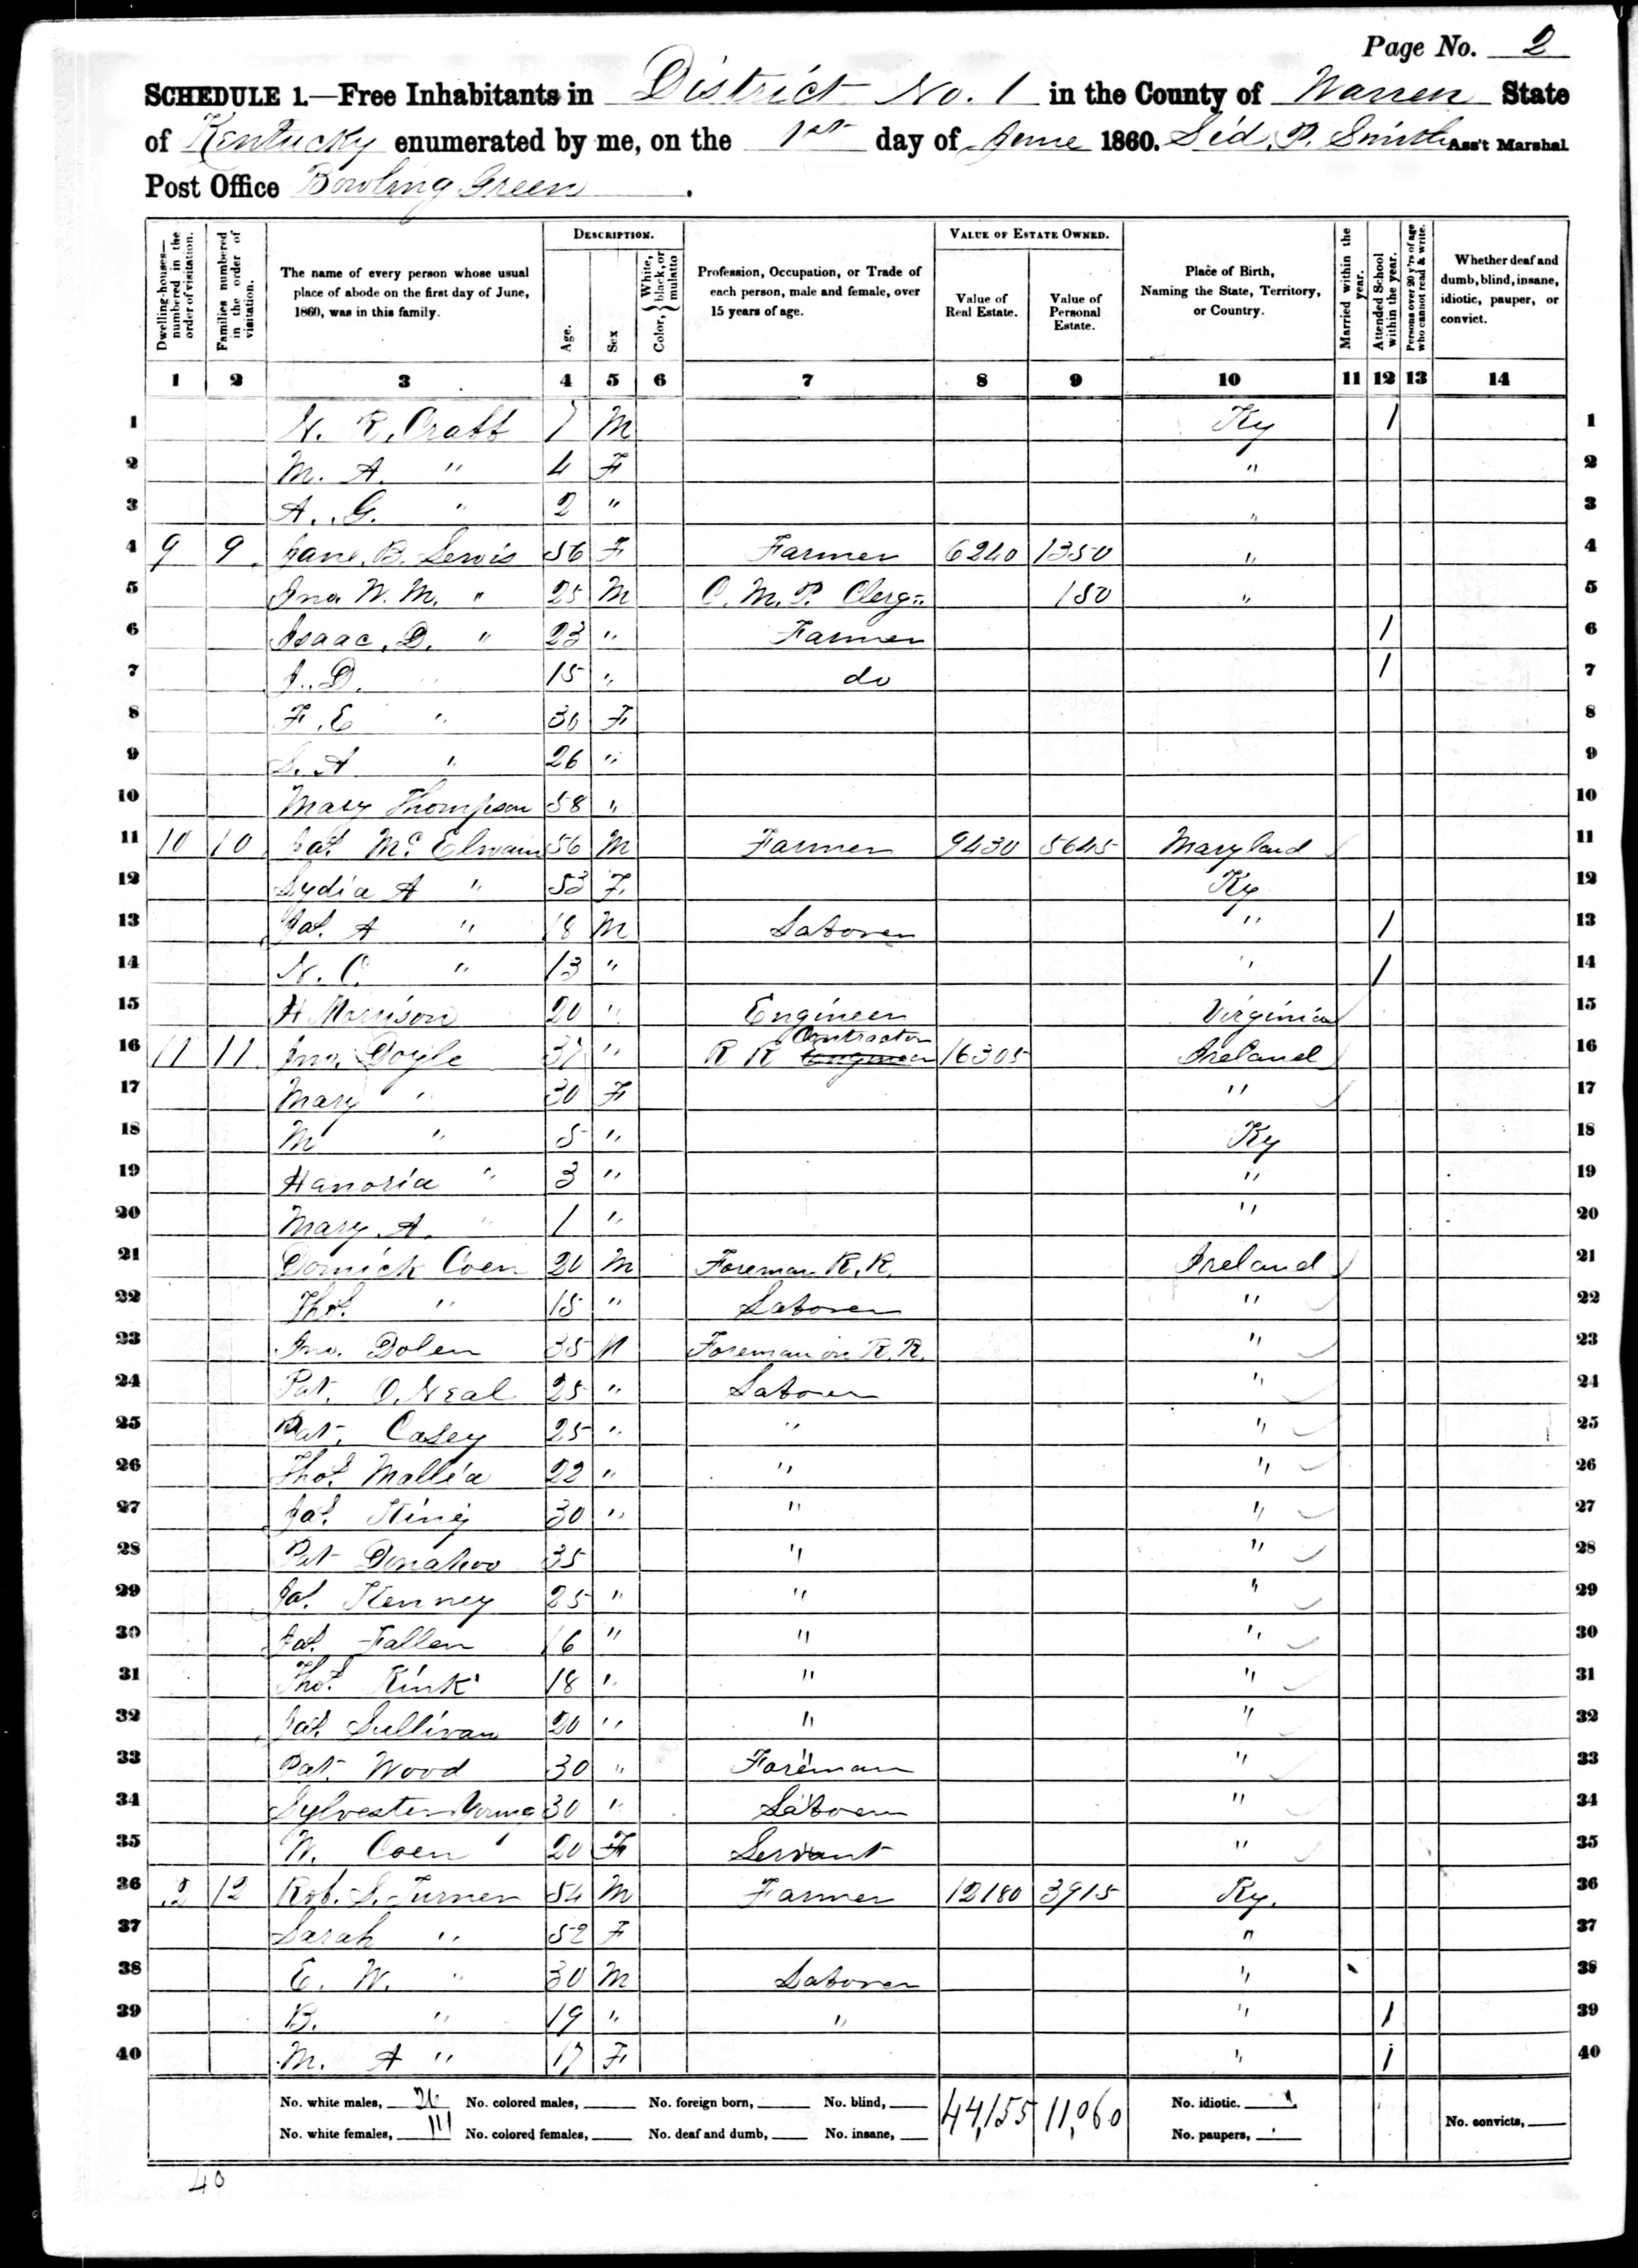 Page No. 2
SCHEDULE 1.—Free Inhabitants in District No. 1 in the County of Warren State
of Kentucky enumerated by me, on the 1st day of June 1860. Sid. P. Smith Ass't Marshal
Post Office Bowling Green .
Dwelling-houses—numbered in the order of visitation. Families numbered in the order of visitation. The name of every person whose usual place of abode on the first day of June, 1860, was in this family. DESCRIPTION. Age. Sex Color, { White, black, or mulatto Profession, Occupation, or Trade of each person, male and female, over 15 years of age. VALUE OF ESTATE OWNED. Value of Real Estate. Value of Personal Estate. Place of Birth, Naming the State, Territory, or Country. Married within the year. Attended School within the year. Persons over 20 y'rs of age who cannot read & write. Whether deaf and dumb, blind, insane, idiotic, pauper, or convict.
1 2 3 4 5 6 7 8 9 10 11 12 13 14
1 N. R. 7 M Ky / 1
2 M. A. " 4 F " 2
3 A. G. " 2 " " 3
4 9 9 Jane. B. Lewis 56 F Farmer 6240 1350 " 4
5 Jno W. M. " 25 M C. M. P. Clerg= 150 " 5
6 Isaac. D. " 23 " Farmer / 6
7 J. D. " 15 " do / 7
8 F. E " 30 F 8
9 S. A " 26 " 9
10 Mary Thompson 58 " 10
11 10 10 Jas. Mc. Elwain 56 M Farmer 9430 5645 Maryland 11
12 Lydia A " 53 F. Ky 12
13 Jas. A " 18 M Laborer " / 13
14 N. C. " 13 " " / 14
15 H Morrison 20 " Engineer Virginia 15
16 11 11 Jno. Doyle 37 " R R Engineer Contractor 16305 Ireland 16
17 Mary " 30 F " 17
18 M " 5 " Ky 18
19 Hanoria " 3 " " 19
20 Mary. A. " 1 " " 20
21 Domick Coen 20 M Foreman R. R. Ireland 21
22 Thos. " 15 " Laborer " 22
23 Jno. Dolen 35 M Foreman on R. R. " 23
24 Pat. O. Neal 25 " Laborer " 24
25 Pat. Casey 25 " " " 25
26 Thos. Mallia 22 " " " 26
27 Jas. King 30 " " " 27
28 Pat Donahoo 35 " " 28
29 Jas. Kenney 25 " " " 29
30 Jas. Fallen 16 " " " 30
31 Thos. Kink 18 " " " 31
32 Jas. Sullivan 20 " " " 32
33 Pat. Wood 30 " Foreman " 33
34 Sylvester Young 30 " Laborer " 34
35 W. Coen 20 F Servant " 35
36 12 12 Rob. S. Turner 54 M Farmer 12180 3915 Ky. 36
37 Sarah " 52 F " 37
38 E. W. " 30 M Laborer " 38
39 B. " 19 " " " / 39
40 M. A " 17 F " / 40
No. white males, 26 No. colored males, No. foreign born, No. blind, 44,155 11,060 No. idiotic.
No. white females, No. colored females, No. deaf and dumb, No. insane, No. paupers, No. convicts,
40